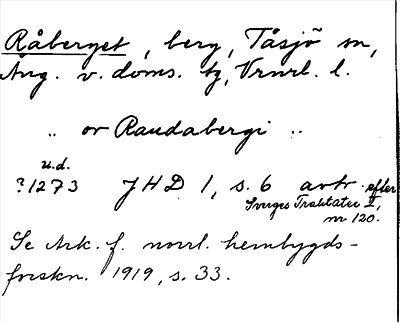 Råberget, berg, Tåsjö sn,
Ång. v. doms. tg, Vrnrl. l.
„ or Raudabergi „
u.d.
?1273 JHD 1, s. 6 avtr. efter
Sveriges Traktater I,
nr 120.
Se Ark. f. norrl. hembygds-
forskn. 1919, s. 33.